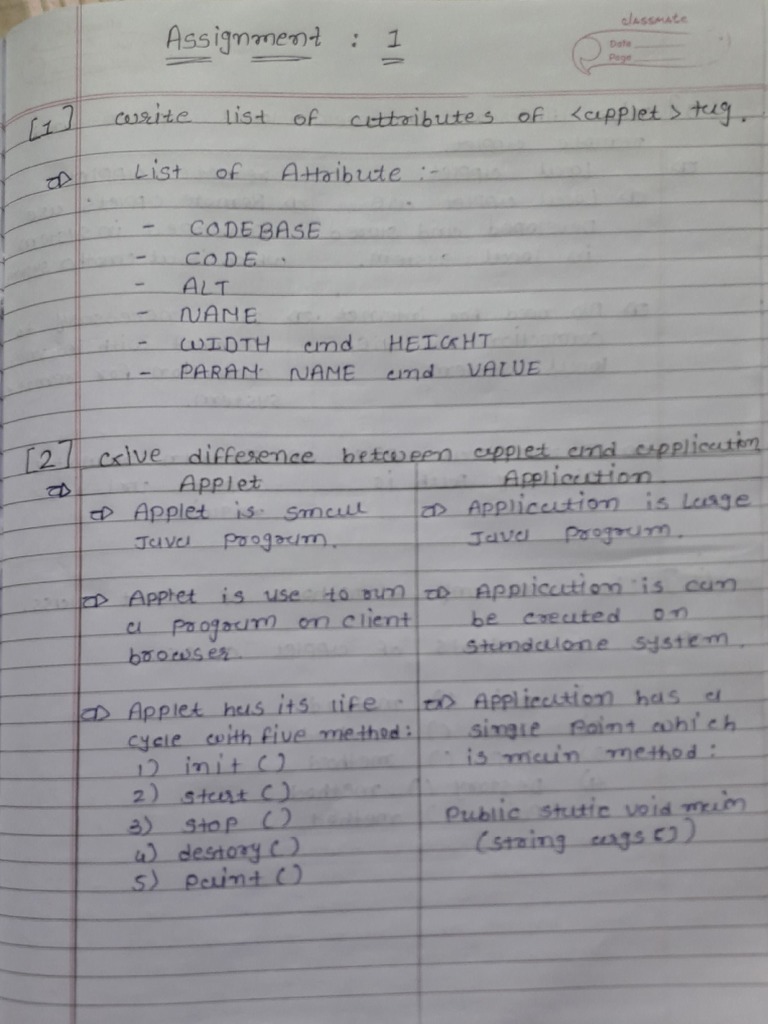 classmate
Date
Page
Assignment : 1
[1] write list of attributes of <applet> tag.
⇒ List of Attribute :-
- CODEBASE
- CODE.
- ALT
- NAME
- WIDTH and HEIGHT
- PARAM NAME and VALUE
[2] Give difference between applet and application
⇒ Applet
⇒ Applet is small
Java progoram.
⇒ Applet is use to run
a progoram on client
browser.
⇒ Applet has its life
cycle with five method:
1) init ()
2) start ()
3) stop ()
4) destory ()
5) paint ()
Application.
⇒ Application is Large
Java progoram.
⇒ Application is can
be created on
standalone system.
⇒ Application has a
single Point which
is main method:
Public static void main
(string args [])